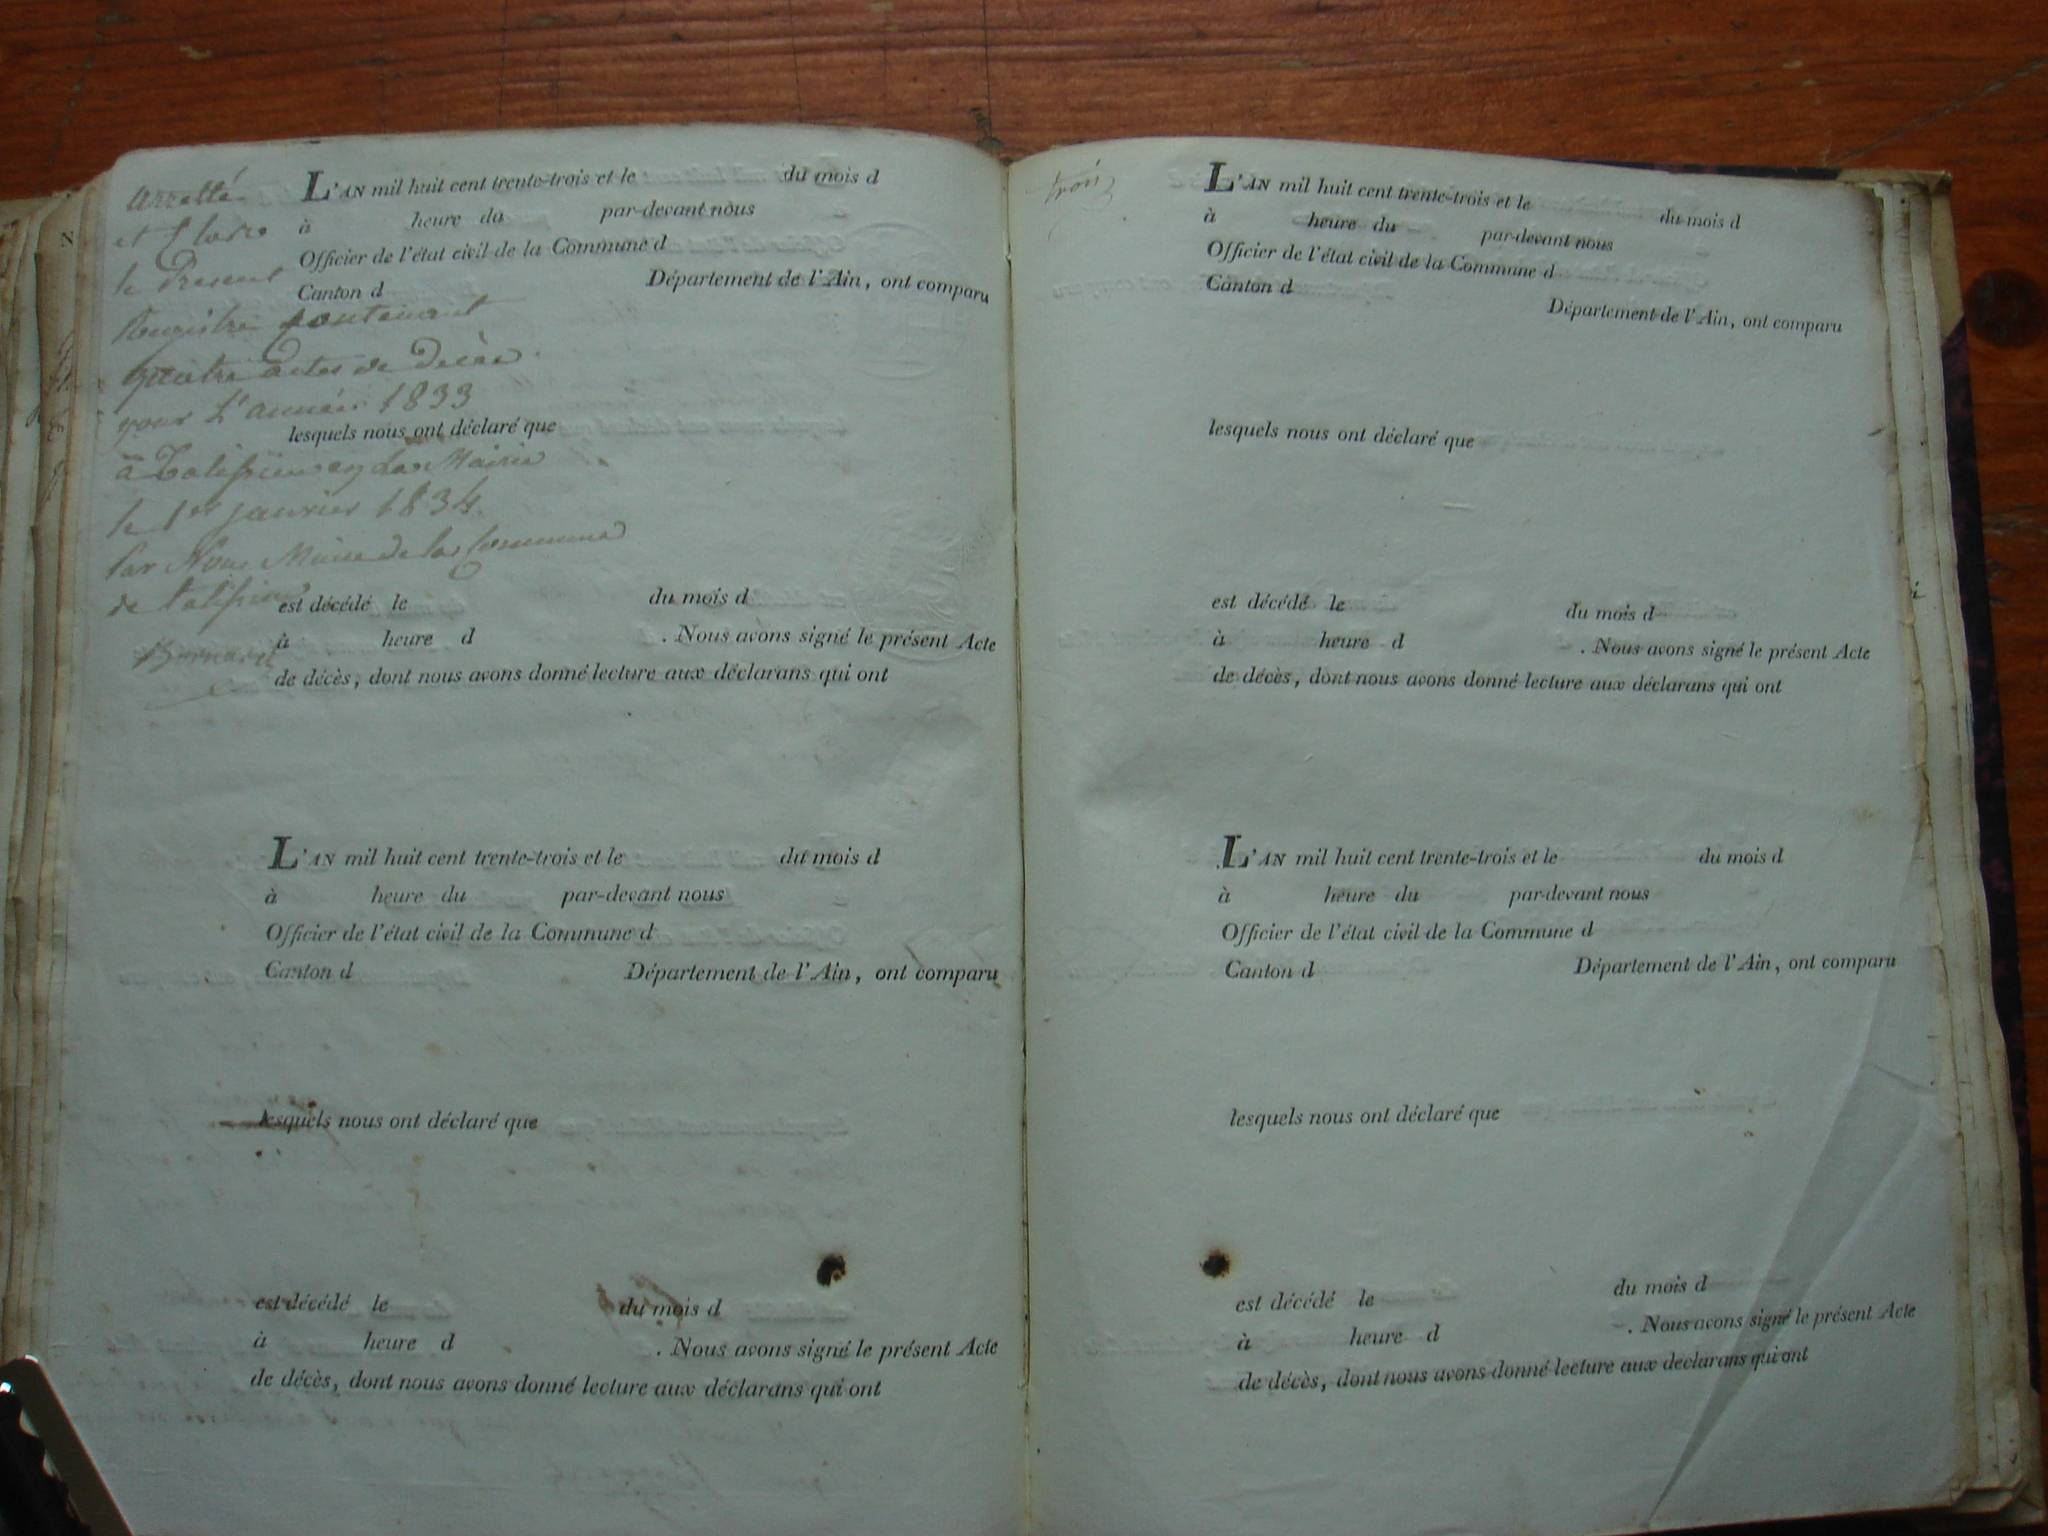 Arretté
et Clore
le Present
Registre contenant
quatre actes de Décès
pour L'année 1833
à Talissieu en La Mairie
le 1er janvier 1834
Par Nous Maire de la Commune
de Talissieu
L'AN mil huit cent trente-trois et le du mois d
à heure du par-devant nous
Officier de l'état civil de la Commune d
Canton d Département de l'Ain, ont comparu
lesquels nous ont déclaré que
est décédé le du mois d
à heure d . Nous avons signé le présent Acte
de décès, dont nous avons donné lecture aux déclarans qui ont
L'AN mil huit cent trente-trois et le du mois d
à heure du par-devant nous
Officier de l'état civil de la Commune d
Canton d Département de l'Ain, ont comparu
lesquels nous ont déclaré que
est décédé le du mois d
à heure d . Nous avons signé le présent Acte
de décès, dont nous avons donné lecture aux déclarans qui ont
trois
L'AN mil huit cent trente-trois et le du mois d
à heure du par-devant nous
Officier de l'état civil de la Commune d
Canton d
Département de l'Ain, ont comparu
lesquels nous ont déclaré que
est décédé le du mois d
à heure d . Nous avons signé le présent Acte
de décès, dont nous avons donné lecture aux déclarans qui ont
L'AN mil huit cent trente-trois et le du mois d
à heure du par-devant nous
Officier de l'état civil de la Commune d
Canton d Département de l'Ain, ont comparu
lesquels nous ont déclaré que
est décédé le du mois d
à heure d . Nous avons signé le présent Acte
de décès, dont nous avons donné lecture aux déclarans qui ont